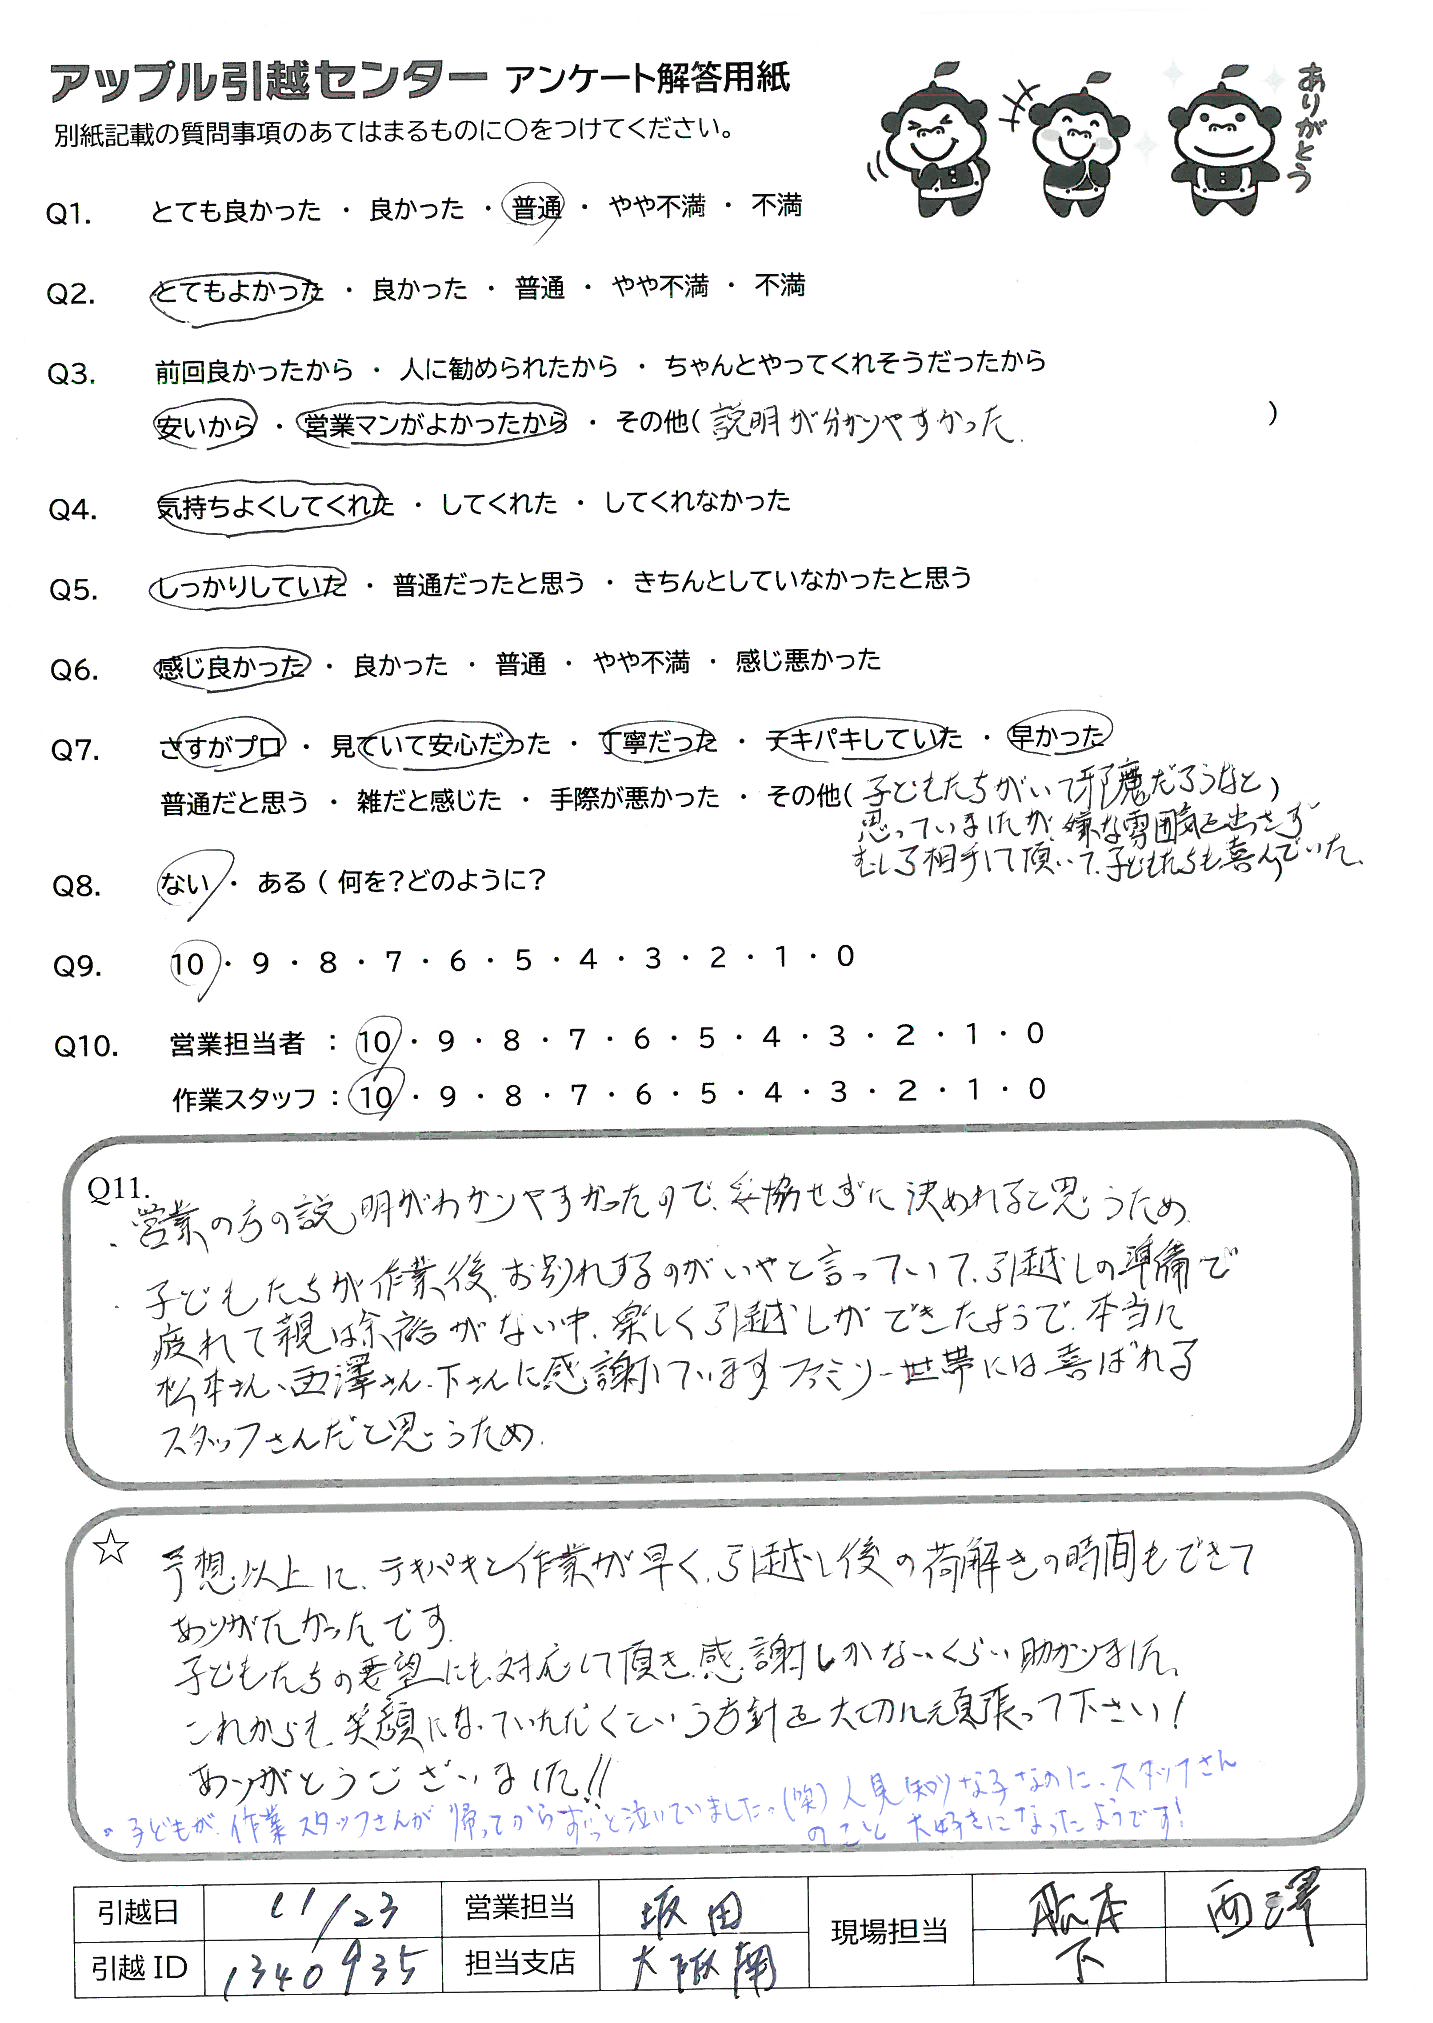 アップル引越センター アンケート解答用紙
ありがとう
別紙記載の質問事項のあてはまるものに〇をつけてください。
Q1. とても良かった ・ 良かった ・ 普通 ・ やや不満 ・ 不満
Q2. とてもよかった ・ 良かった ・ 普通 ・ やや不満 ・ 不満
Q3. 前回良かったから ・ 人に勧められたから ・ ちゃんとやってくれそうだったから
安いから ・ 営業マンがよかったから ・ その他( 説明が分かりやすかった. )
Q4. 気持ちよくしてくれた ・ してくれた ・ してくれなかった
Q5. しっかりしていた ・ 普通だったと思う ・ きちんとしていなかったと思う
Q6. 感じ良かった ・ 良かった ・ 普通 ・ やや不満 ・ 感じ悪かった
Q7. さすがプロ ・ 見ていて安心だった ・ 丁寧だった ・ テキパキしていた ・ 早かった
普通だと思う ・ 雑だと感じた ・ 手際が悪かった ・ その他( 子どもたちがいて邪魔だろうなと )
思っていましたが、嫌な雰囲気を出さず
むしろ相手して頂いて、子どもたちも喜んでいた。
Q8. ない ・ ある ( 何を?どのように?
Q9. 10 ・ 9 ・ 8 ・ 7 ・ 6 ・ 5 ・ 4 ・ 3 ・ 2 ・ 1 ・ 0
Q10. 営業担当者 : 10 ・ 9 ・ 8 ・ 7 ・ 6 ・ 5 ・ 4 ・ 3 ・ 2 ・ 1 ・ 0
作業スタッフ : 10 ・ 9 ・ 8 ・ 7 ・ 6 ・ 5 ・ 4 ・ 3 ・ 2 ・ 1 ・ 0
Q11.
・営業の方の説明がわかりやすかったので、妥協せずに決めれると思うため
・子どもたちが作業後、お別れするのがいやと言っていて、引越しの準備で
疲れて親は余裕がない中、楽しく引越しができたようで、本当に
松本さん、西澤さん、下さんに感謝しています ファミリー世帯には喜ばれる
スタッフさんだと思うため.
☆ 予想以上に、テキパキと作業が早く、引越し後の荷解きの時間もできて
ありがたかったです.
子どもたちの要望にも対応して頂き、感謝しかないくらい助かりました。
これからも、笑顔になっていただくという方針を大切に頑張って下さい!
ありがとうございました!!
。子どもが、作業スタッフさんが帰ってからずっと泣いていました。(笑) 人見知りな子なのに、スタッフさん
のこと大好きになったようです!
引越日 11/23 営業担当 坂田 現場担当 松本 西澤
引越 ID 1340935 担当支店 大阪南 下